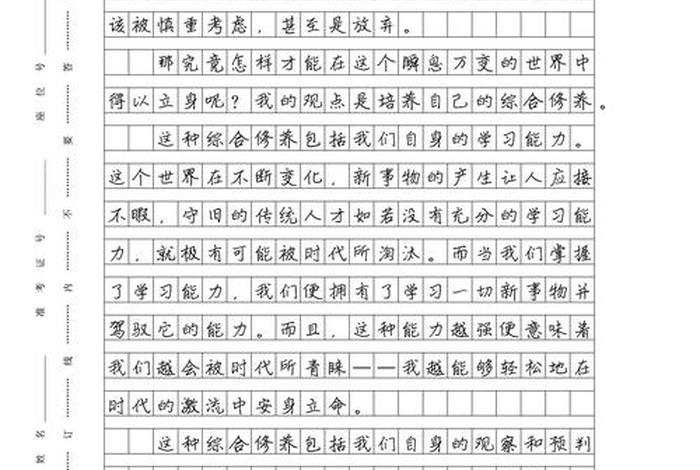 该被慎重考虑，甚至是放弃。
那究竟怎样才能在这个瞬息万变的世界中
得以立身呢？我的观点是培养自己的综合修养。
这种综合修养包括我们自身的学习能力。
这个世界在不断变化，新事物的产生让人应接
不暇，守旧的传统人才如若没有充分的学习能
力，就极有可能被时代所淘汰。而当我们掌握
了学习能力，我们便拥有了学习一切新事物并
驾驭它的能力。而且，这种能力越强便意味着
我们越会被时代所青睐——我越能够轻松地在
时代的激流中安身立命。
这种综合修养包括我们自身的观察和预判
座位号
准考证号
姓名
答
要
不
内
线
订